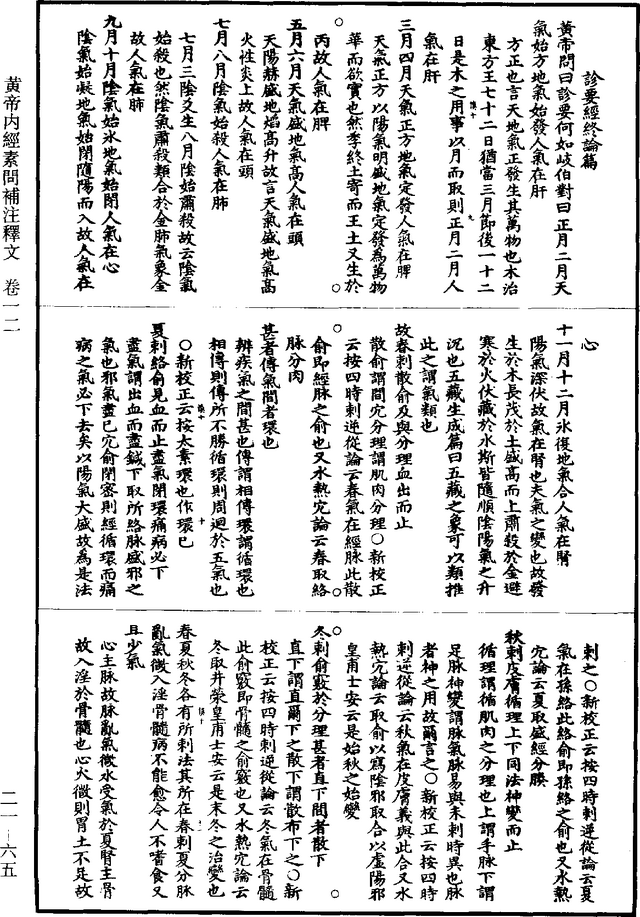 診要經終論篇
黃帝問曰診要何如歧伯對曰正月二月天
氣始方地氣始發人氣在肝
方正也言天地氣正發生其萬物也木治
東方王七十二日猶當三月節後一十二
日是木之用事以月而取則正月二月人
氣在肝
三月四月天氣正方地氣定發人氣在脾
天氣正方以陽氣明盛地氣定發為萬物
華而欲實也然季終土寄而王土又生於
丙故人氣在脾
五月六月天氣盛地氣高人氣在頭
天陽赫盛地焰高升故言天氣盛地氣高
火性炎上故人氣在頭
七月八月陰氣始殺人氣在肺
七月三陰爻生八月陰始肅殺故云陰氣
始殺也然陰氣肅殺類合於金肺氣象金
故人氣在肺
九月十月陰氣始冰地氣始閉人氣在心
陰氣始凝地氣始閉隨陽而入故人氣在
心
十一月十二月冰復地氣合人氣在腎
陽氣深伏故氣在腎也夫氣之變也故發
生於木長茂於土盛高而上肅殺於金避
寒於火伏藏於水斯皆隨順陰陽氣之升
沉也五藏生成篇曰五藏之象可以類推
此之謂氣類也
故春刺散俞及與分理血出而止
散俞謂間穴分理謂肌肉分理○新校正
云按四時刺逆從論云春氣在經脉此散
俞即經脉之俞也又水熱穴論云春取絡
脉分肉
甚者傳氣間者環也
辨疾氣之間甚也傳謂相傳環謂循環也
相傳則傳所不勝循環則周迴於五氣也
○新校正云按太素環也作環已
夏刺絡俞見血而止盡氣閉環痛病必下
盡氣謂出血而盡鍼下取所絡脉盛邪之
氣也邪氣盡已穴俞閉密則經循環而痛
病之氣必下去矣以陽氣大盛故為是法
刺之○新校正云按四時刺逆從論云夏
氣在孫絡此絡俞即孫絡之俞也又水熱
穴論云夏取盛經分腠
秋刺皮膚循理上下同法神變而止
循理謂循肌肉之分理也上謂手脉下謂
足脉神變謂脉氣脉易與未刺時異也脉
者神之用故爾言之○新校正云按四時
刺逆從論云秋氣在皮膚義與此合又水
熱穴論云取俞以瀉陰邪取合以虛陽邪
皇甫士安云是始秋之始變
冬刺俞竅於分理甚者直下間者散下
直下謂直爾下之散下謂散布下之○新
校正云按四時刺逆從論云冬氣在骨髓
此俞竅即骨髓之俞竅也又水熱穴論云
冬取井滎皇甫士安云是末冬之治變也
春夏秋冬各有所刺法其所在春刺夏分脉
亂氣微入淫骨髓病不能愈令人不嗜食又
且少氣
心主脉故脉亂氣微水受氣於夏腎主骨
故入淫於骨髓也心火微則胃土不足故
黃帝內經素問補注釋文 卷一二
二一－六五